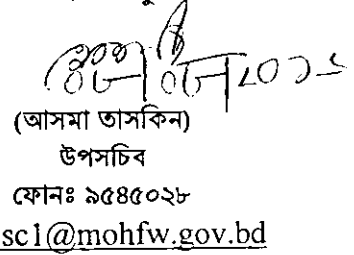 (আসমা তাসকিন)
উপসচিব
ফোনঃ ৯৫৪৫০২৮
sc1@mohfw.gov.bd